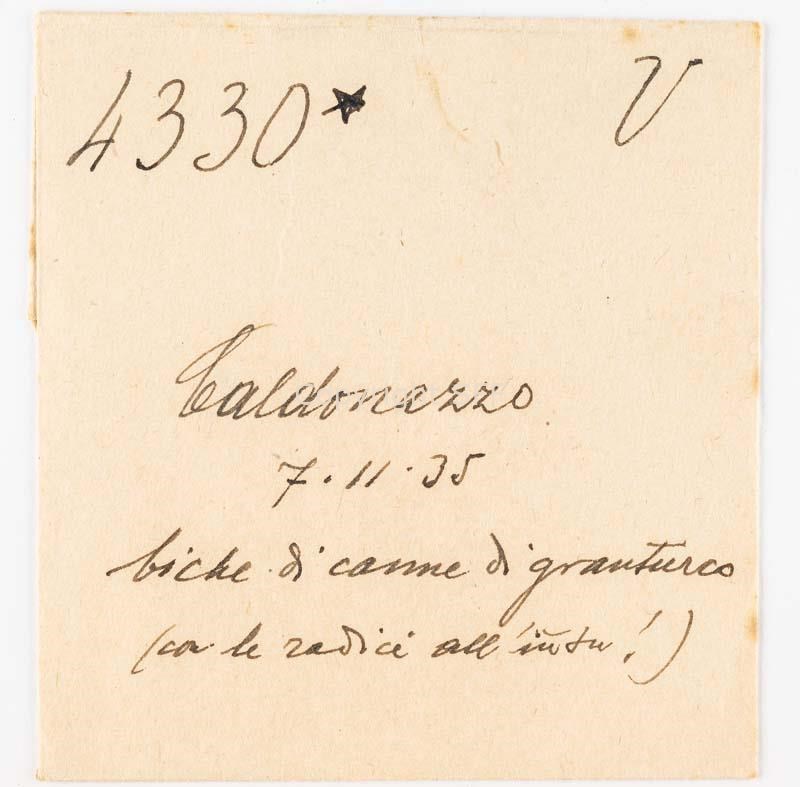 4330* V
Caldonazzo
7.11.35
biche di canne di granturco
(con le radici all'insù!)